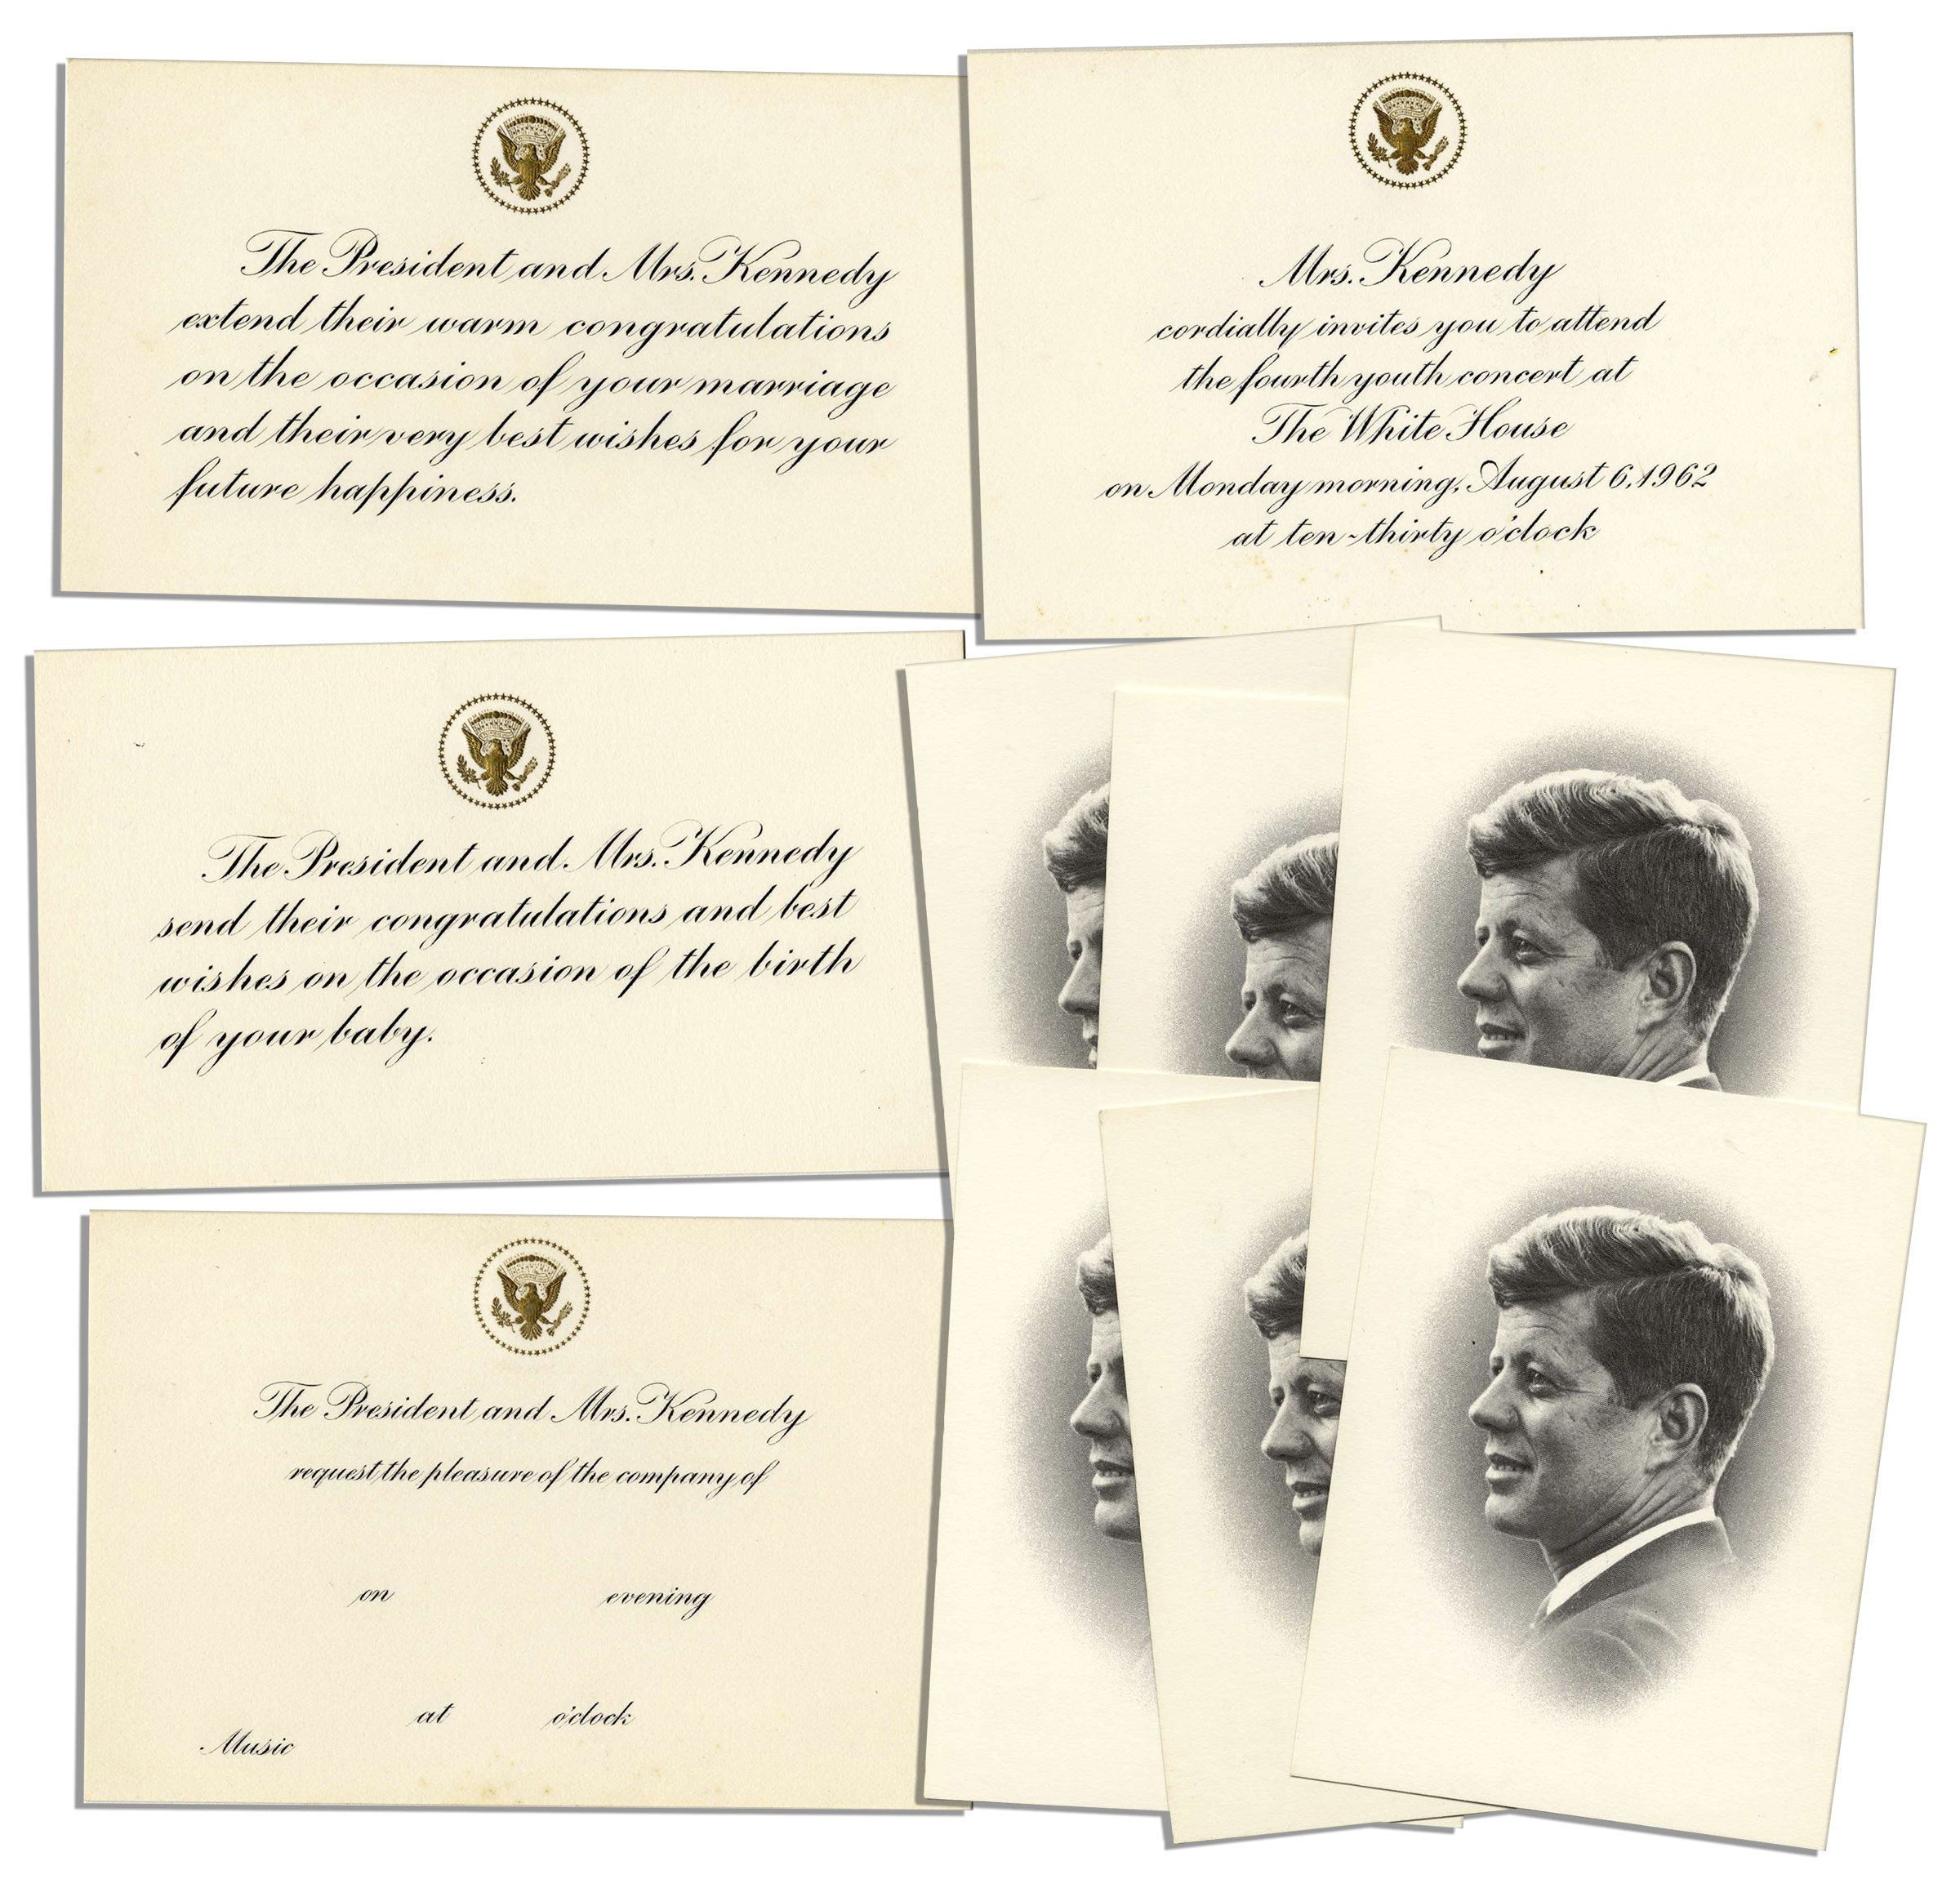 The President and Mrs. Kennedy
extend their warm congratulations
on the occasion of your marriage
and their very best wishes for your
future happiness.
Mrs. Kennedy
cordially invites you to attend
the fourth youth concert at
The White House
on Monday morning, August 6, 1962
at ten-thirty o'clock
The President and Mrs. Kennedy
send their congratulations and best
wishes on the occasion of the birth
of your baby.
The President and Mrs. Kennedy
request the pleasure of the company of
on evening
at o'clock
Music